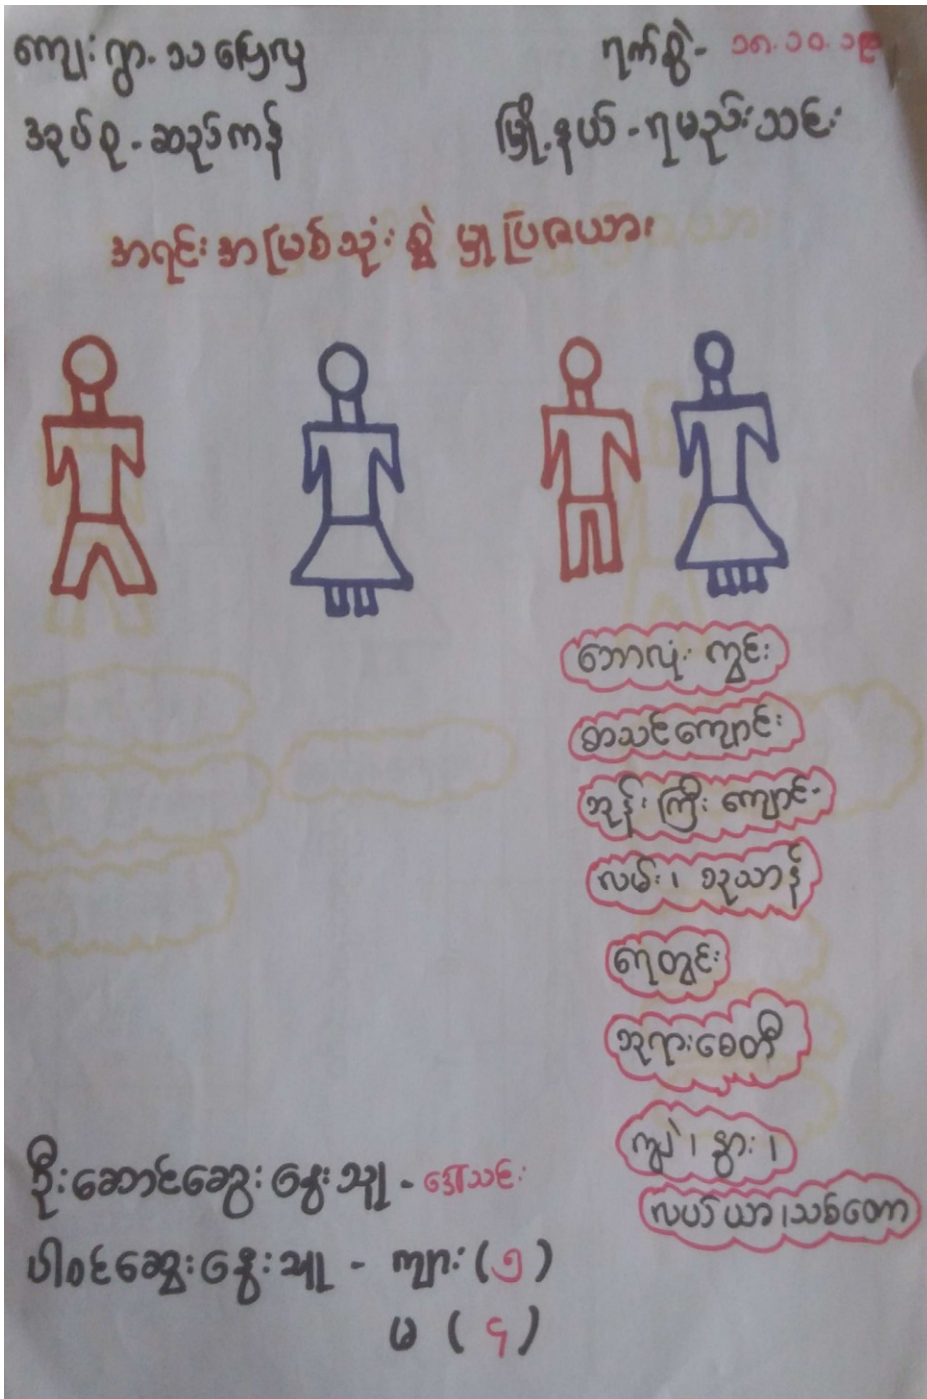 ကျေးရွာ- သပြေလှ
ရက်စွဲ- ၁၈.၁၀.၁၉
အုပ်စု- ဆည်ကန်
မြို့နယ် - ရမည်းသင်း
အရင်းအမြစ်သုံးစွဲမှုပြဇယား
ဘောလုံးကွင်း
စာသင်ကျောင်း
ဘုန်းကြီးကျောင်း
လမ်း၊ သုသာန်
ရေတွင်း
ဘုရားစေတီ
ကျွဲ၊ နွား၊
လယ်ယာ၊သစ်တော
ဦးဆောင်ဆွေးနွေးသူ - ဒေါ်သင်း
ပါဝင်ဆွေးနွေးသူ - ကျား (၅)
မ (၄)